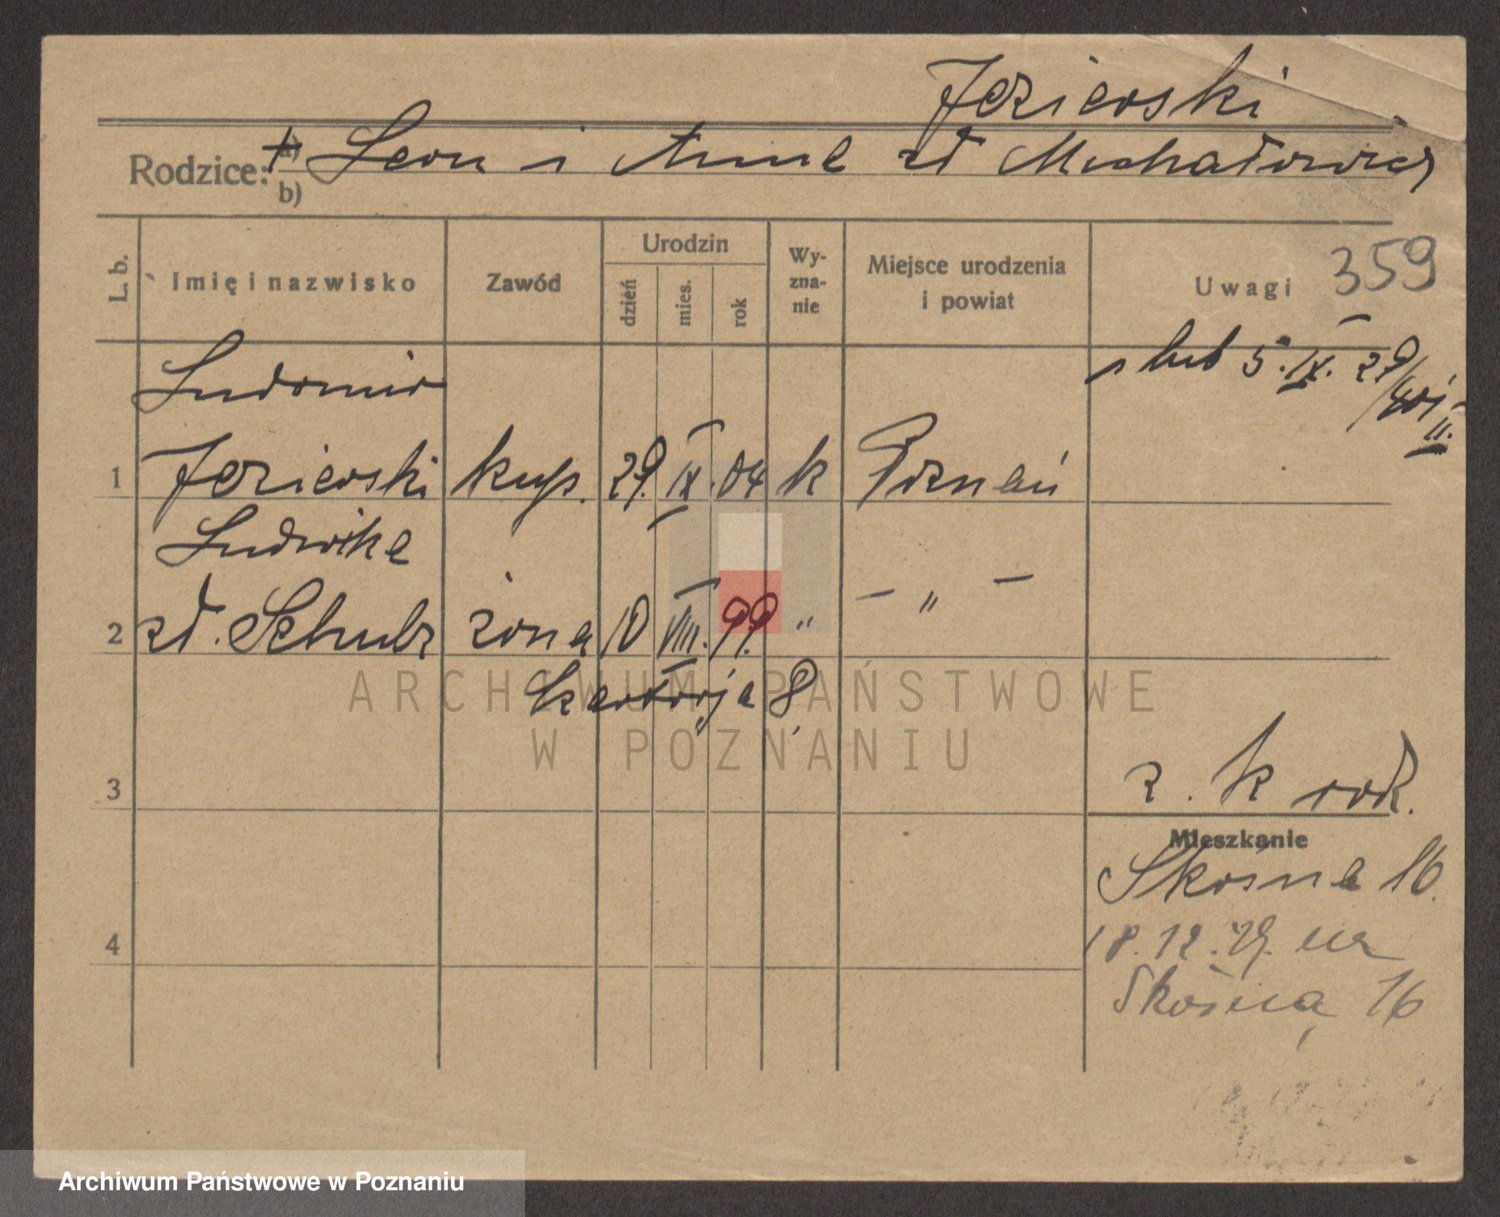 Jezierski
Rodzice: a) + Leon i Anna zd Michałowicz
b)
L. b. Imię i nazwisko Zawód Urodzin dzień mies. rok Wyznanie Miejsce urodzenia i powiat Uwagi 359
ślub 5.IX.29
Ludomir
1 Jezierski kup. 29. IX. 04 k Poznań
Ludwika
2 zd. Schulz żona 10 VIII. 99. " — „ —
8,
ARCHIWUM PAŃSTWOWE
W POZNANIU
3
z. k rod.
Mieszkanie
Skośna 16.
4
18.12.29. na
Skośną 16
Archiwum Państwowe w Poznaniu